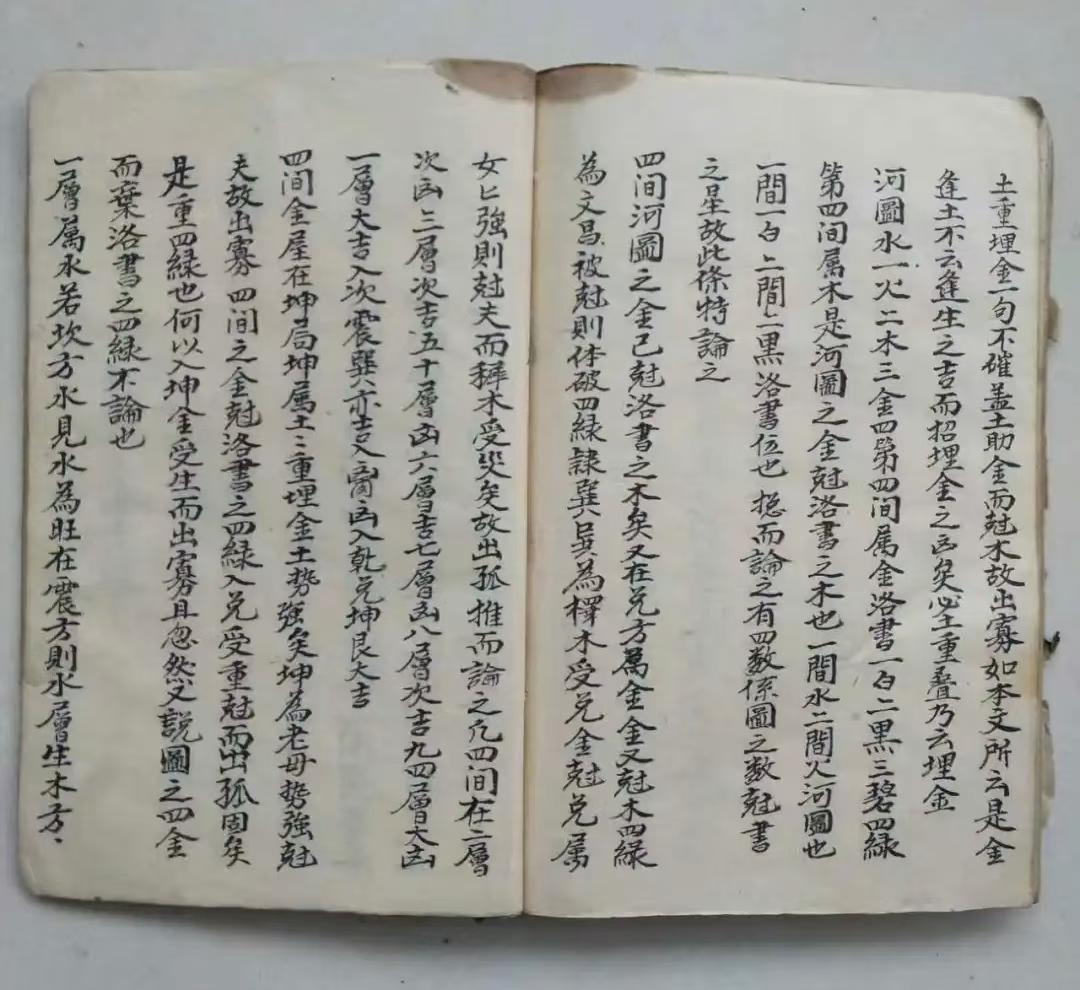 土重埋金一句不確蓋土助金而尅木故出寡如本文所云是金
逢土不云逢生之吉而招埋金之凶矣必土重疊乃云埋金
河圖水一火二木三金四第四间属金洛書一白二黑三碧四緑
第四间属木是河圖之金尅洛書之木也一間水二間火河圖也
一間一白二間二黑洛書位也捴而論之有四数係圖之数尅書
之星故此條特論之
四间河圖之金已尅洛書之木矣又在兑方萬金金又尅木四緑
為文昌被尅則体破四緑隷巽巽為樱木受兑金尅兑属
女匕強則尅夫而釋木受災矣故出孤推而論之凢四间在二層
次凶三層次吉五十層凶六層吉七層凶八層次吉九四層大凶
一層大吉入次震巽六亦吉入离凶入乾兑坤艮大吉
四间金屋在坤局坤属土〻重埋金土势強矣坤為老母势強尅
夫故出寡四间之金尅洛書之四緑入兑受重尅而出孤固矣
是重四緑也何以入坤金受生而出寡且忽然又說圖之四金
而棄洛書之四緑不論也
一層属水若坎方水見水為旺在震方則水層生木方、